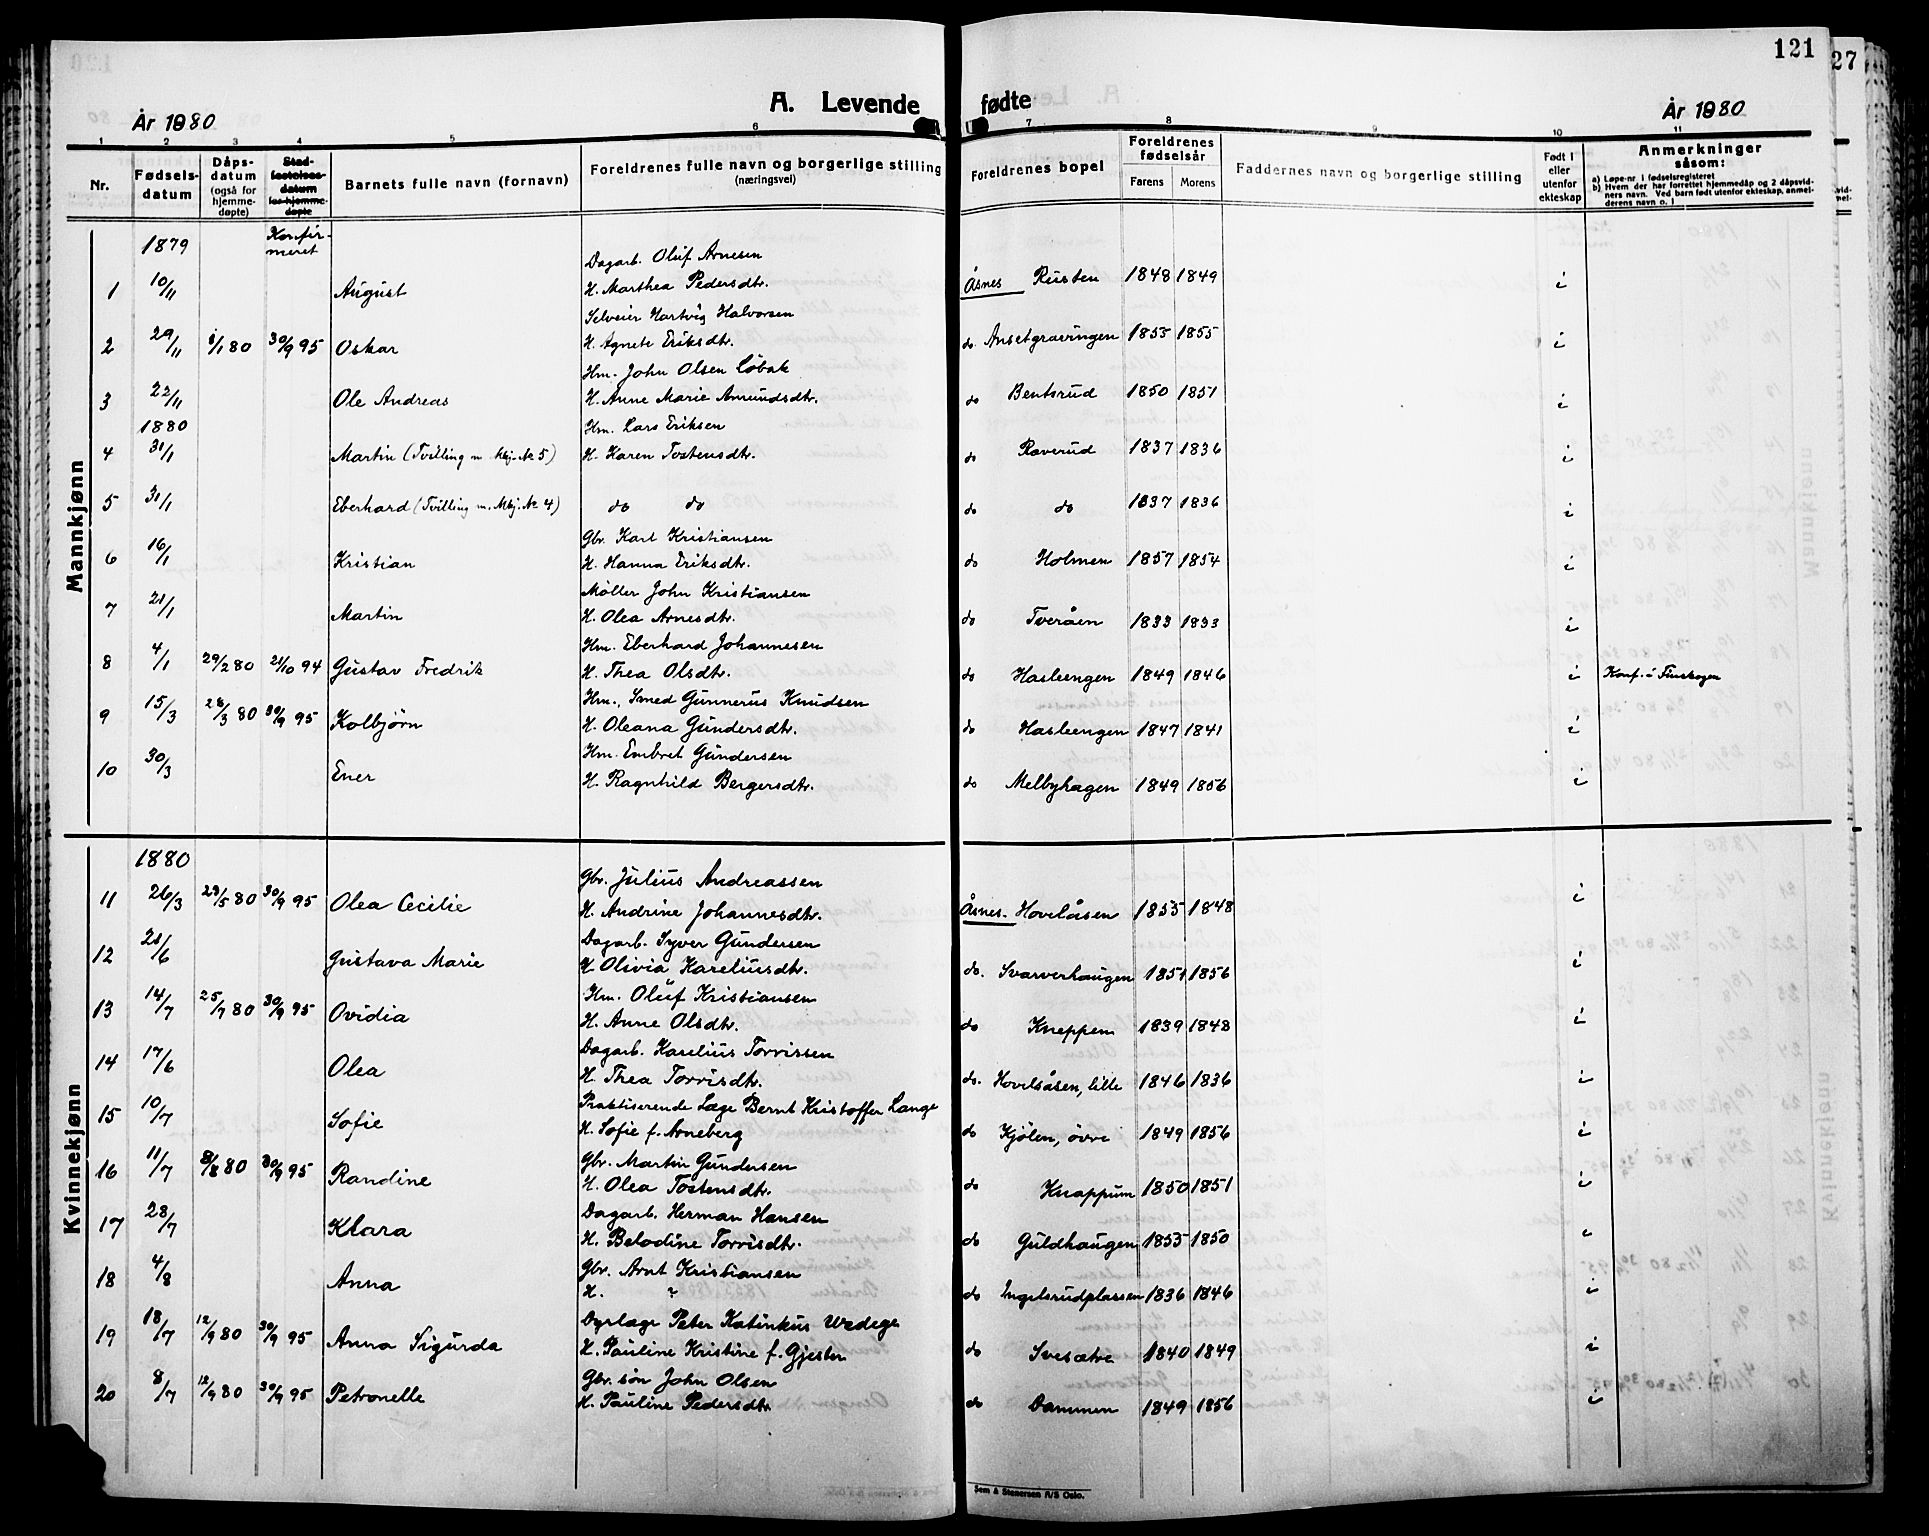 121
27
A. Levende fødte
År 1880
År 1880
1 2 3 4 5 6 7 8 9 10 11
Nr.
Fødsels-datum
Dåps-datum (også for hjemme-døpte)
Stad-festelses-datum for hjemme-døpte
Barnets fulle navn (fornavn)
Foreldrenes fulle navn og borgerlige stilling (næringsvei)
Foreldrenes bopel
Foreldrenes fødselsår
Farens Morens
Faddernes navn og borgerlige stilling
Født i eller utenfor ekteskap
Anmerkninger såsom:
a) Løpe-nr i fødselsregisteret
b) Hvem der har forrettet hjemmedåp og 2 dåpsvid-
ners navn. Ved barn født utenfor ekteskap, anmel-
derens navn o. l
Mannkjønn
1879 Konfir-meret
Dagarb. Oluf Arnesen
1 10/11 August H. Marthea Pedersdtr. Åsnes Rusten 1848 1849 i
Selveier Hartvig Halvorsen
2 29/11 1/1 80 30/9 95 Oskar H. Agnete Eriksdtr. do. Ansetgravingen 1855 1855 i
Hm. John Olsen Løbak
3 22/11 Ole Andreas H. Anne Marie Amundsdtr. do Bentsrud 1850 1851 i
1880 Hm. Lars Eriksen
4 31/1 Martin (Tvilling m. Mkj. № 5) H. Karen Tostensdtr. do Raverud 1837 1836 i
5 31/1 Eberhard (Tvilling m. Mkj. № 4) do do do do 1837 1836 i
Gbr. Karl Kristiansen
6 16/1 Kristian H. Hanna Eriksdtr. do Holmen 1857 1854 i
Møller John Kristiansen
7 21/1 Martin H. Olea Arnesdtr. do Tveråen 1833 1833 i
Hm. Eberhard Johannesen
8 4/1 29/2 80 21/10 94 Gustav Fredrik H. Thea Olsdtr. do Hasleengen 1849 1846 i Konf. i Finskogen
Hm., Smed Gunnerus Knudsen
9 15/3 28/3 80 30/9 95 Kolbjørn H. Oleana Gundersdtr. do Hasleengen 1847 1841 i
Hm. Embret Gundersen
10 30/3 Ener H. Ragnhild Bergersdtr. do Melbyhagen 1849 1856 i
Kvinnekjønn
1880
Gbr. Julius Andreassen
11 26/3 23/5 80 30/9 95 Olea Cecilie H. Andrine Johannesdtr. Åsnes. Hovelåsen 1855 1848 i
Dagarb. Syver Gundersen
12 21/6 Gustava Marie H. Olivia Kareliusdtr. do. Svarverhaugen 1851 1856 i
Hm. Oluf Kristiansen
13 14/7 25/7 80 30/9 95 Ovidia H. Anne Olsdtr. do Kneppen 1839 1848 i
Dagarb. Karelius Torvissen
14 17/6 Olea H. Thea Torrisdtr. do. Hovelsåsen, lille 1846 1836 i
Praktiserende Læge Bernt Kristoffer Lange
15 10/7 Sofie H. Sofie f. Arneberg do Kjølen, øvre 1849 1856 i
Gbr. Martin Gundersen
16 11/7 8/8 80 30/9 95 Randine H. Olea Tostensdtr. do Knappum 1850 1851 i
Dagarb. Herman Hansen
17 23/7 Klara H. Belodine Torrisdtr. do Guldhaugen 1855 1850 i
Gbr. Arnt Kristiansen
18 4/8 Anna H. ? do Engelsrudplassen 1836 1846 i
Dyrlæge Peter Katinkus Wedege
19 18/7 12/9 80 30/9 95 Anna Sigurda H. Pauline Kristine f. Gjester do Svesætre 1840 1849 i
Gbr. søn John Olsen
20 8/7 12/9 80 30/9 95 Petronelle H. Pauline Pedersdtr. do Dammen 1849 1856 i
Sem & Stenersen A/S Oslo.